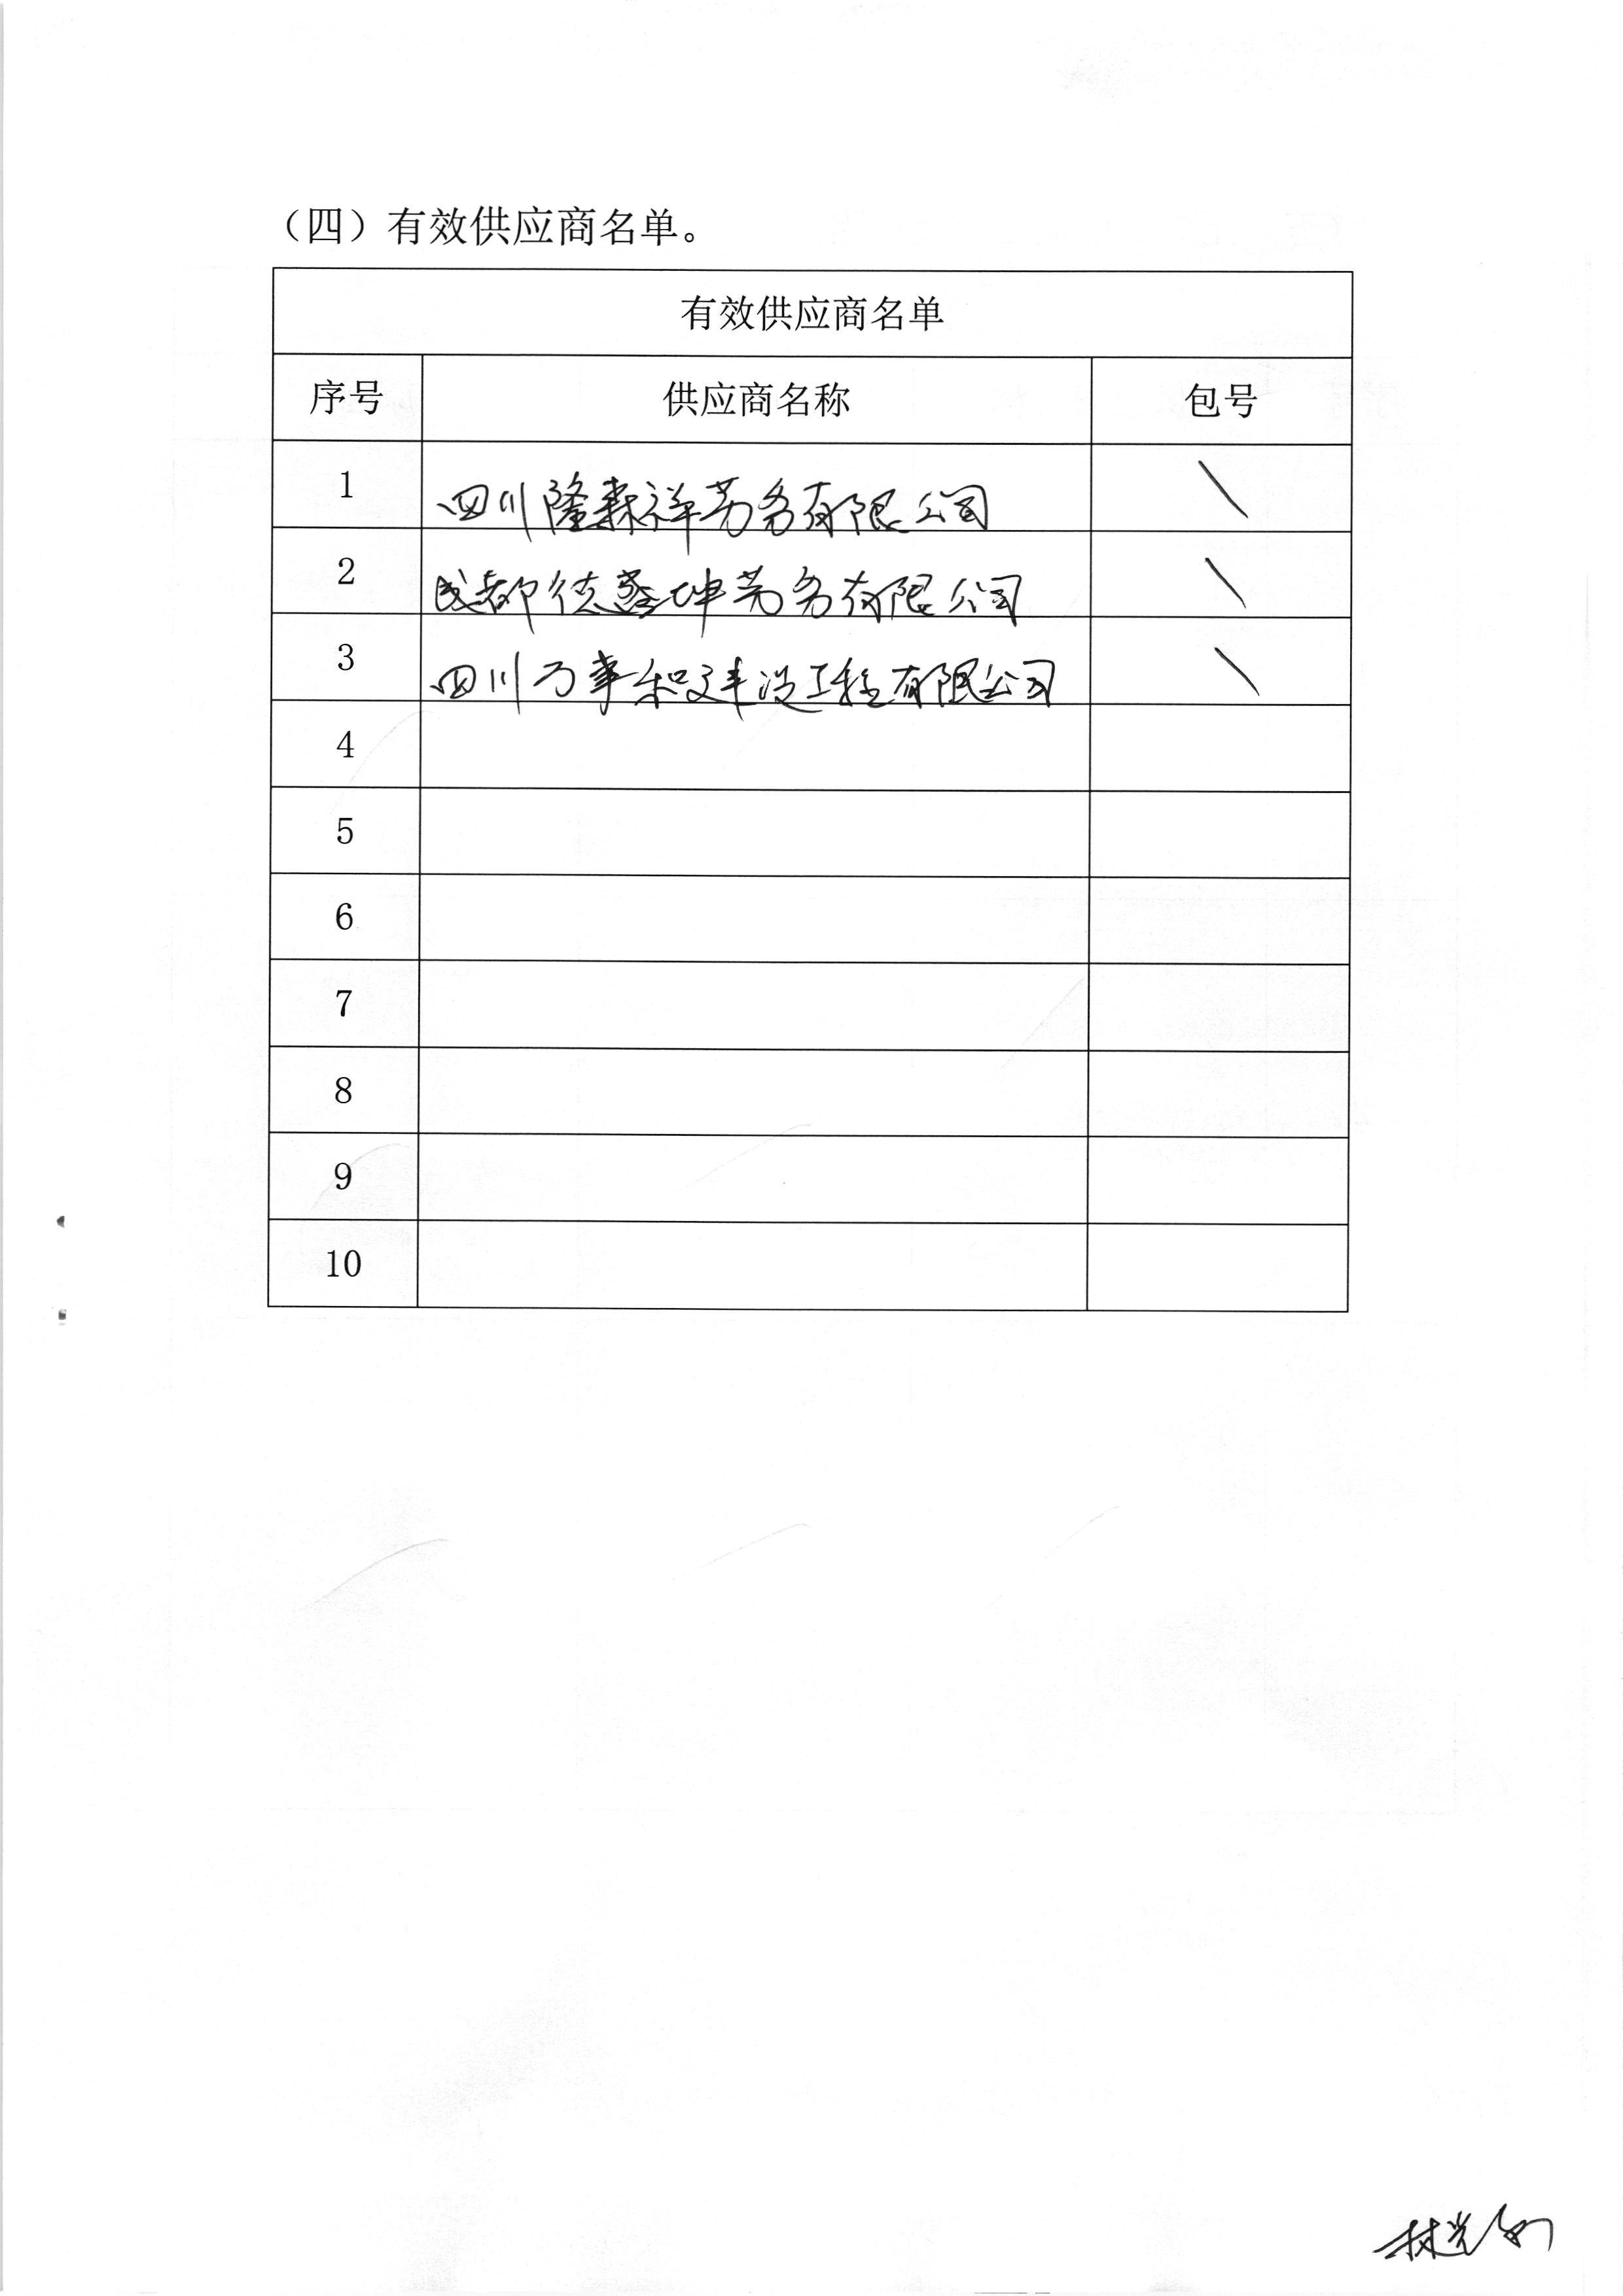 （四）有效供应商名单。
有效供应商名单
序号 供应商名称 包号
1 四川隆森祥劳务有限公司 \
2 成都德鑫坤劳务有限公司 \
3 四川万事和文丰设工程有限公司 \
4
5
6
7
8
9
10